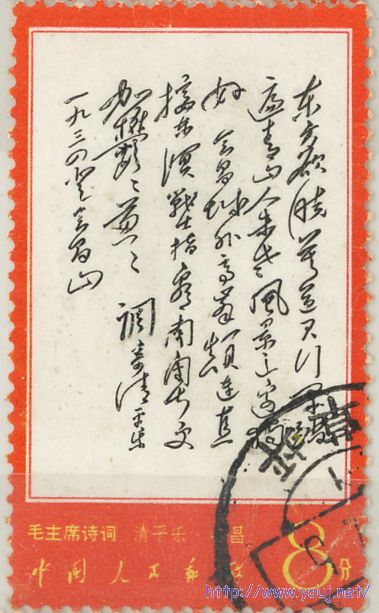 东方欲晓莫道君行早踏
遍青山人未老风景这边独
好 会昌城外高峰颠连直
接东溟战士指看南粤更
加鬱〻葱〻 调寄清平乐
一九三四登会昌山
毛主席诗词 清平乐 昌
中国人民邮政
8分
http://www.youj.net/